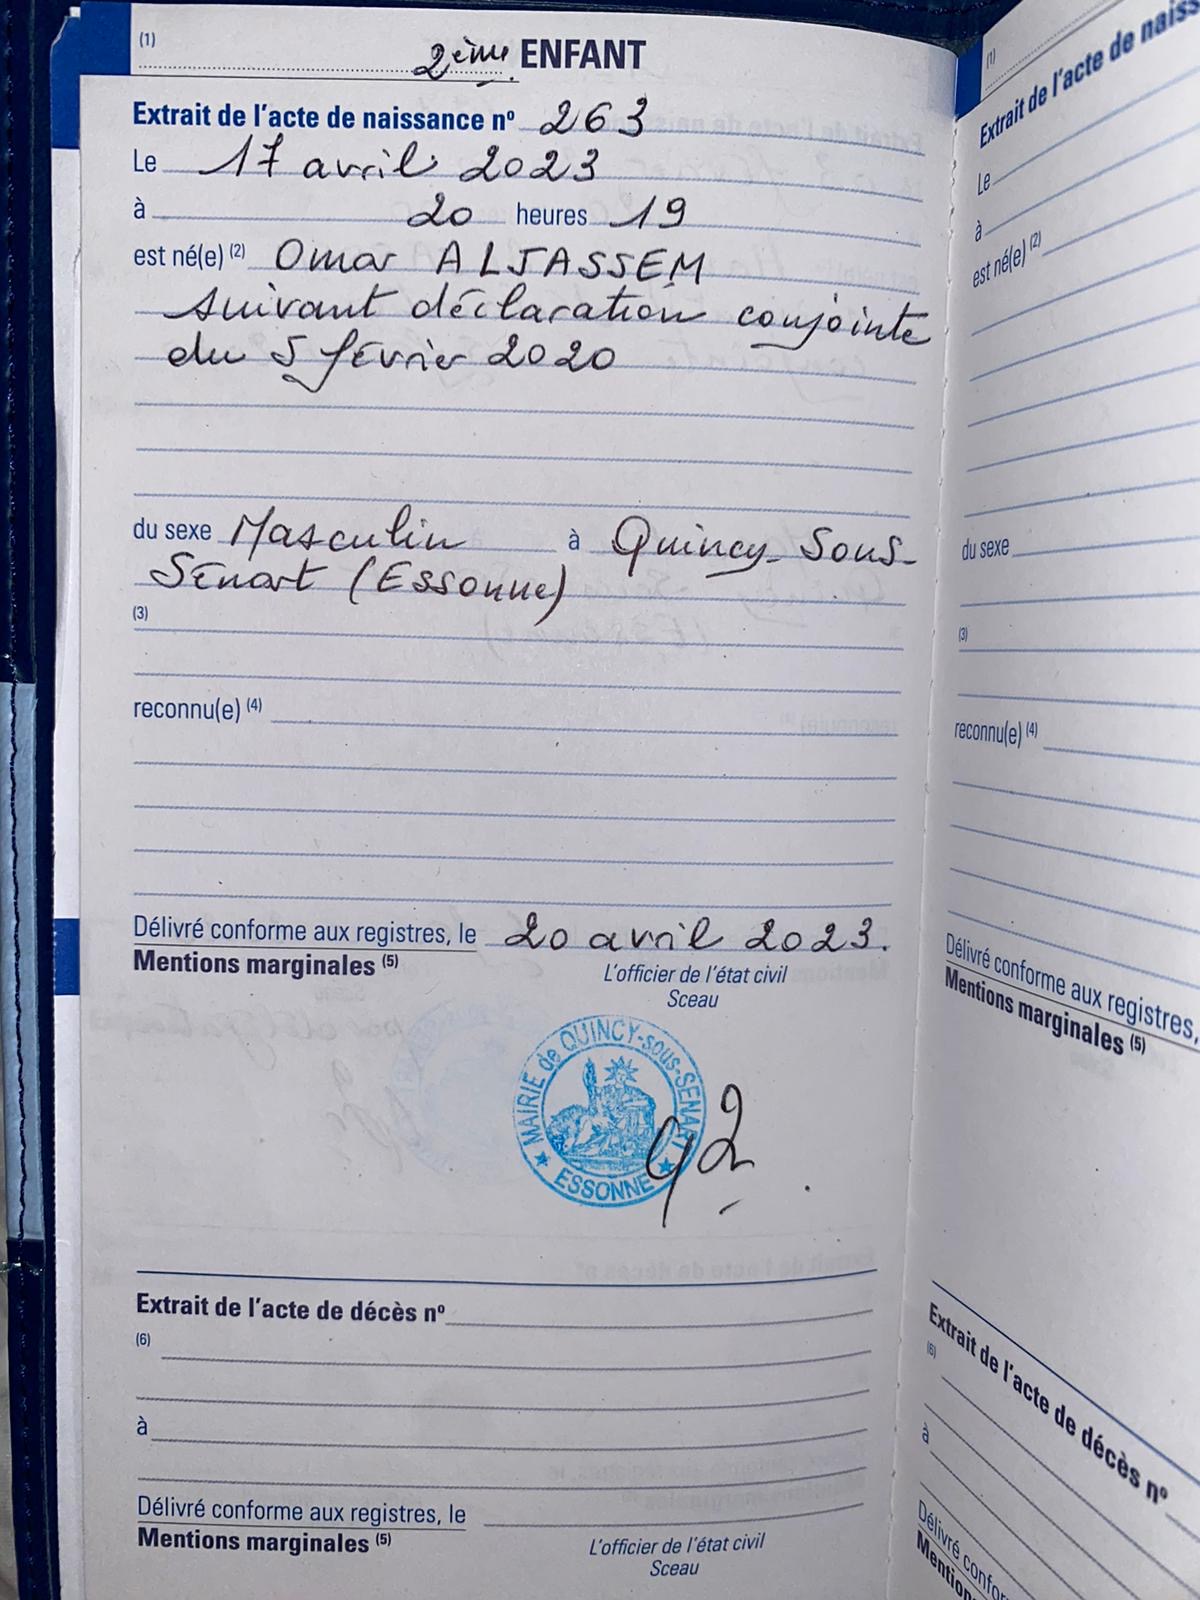 (1)
2ème ENFANT
Extrait de l'acte de naissance nº 263
Le 17 avril 2023
à 20 heures 19
est né(e) (2) Omar ALJASSEM
suivant déclaration conjointe
du 5 février 2020
du sexe Masculin à Quincy-Sous-
Sénart (Essonne)
(3)
reconnu(e) (4)
Délivré conforme aux registres, le 20 avril 2023.
Mentions marginales (5)
L'officier de l'état civil
Sceau
MAIRIE de QUINCY-sous-SENART
ESSONNE
Extrait de l'acte de décès nº
(6)
à
Délivré conforme aux registres, le
Mentions marginales (5)
L'officier de l'état civil
Sceau
(1)
Extrait de l'acte de naiss
Le
à
est né(e) (2)
du sexe
(3)
reconnu(e) (4)
Délivré conforme aux registres,
Mentions marginales (5)
Extrait de l'acte de décès nº
(6)
à
Délivré confor
Mention